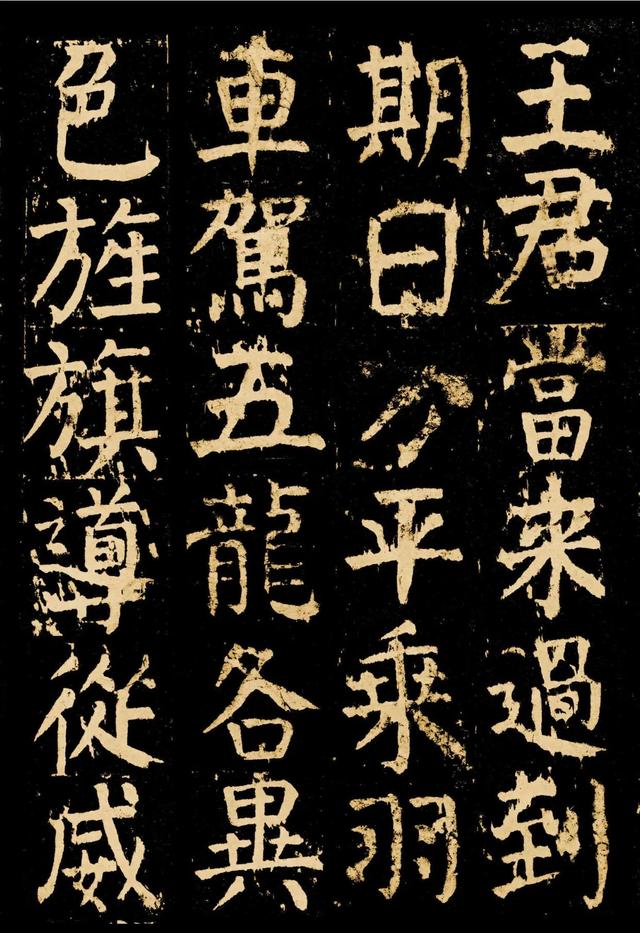 王君當来過到
期日方平乗羽
車駕五龍各異
色旌旗導從威